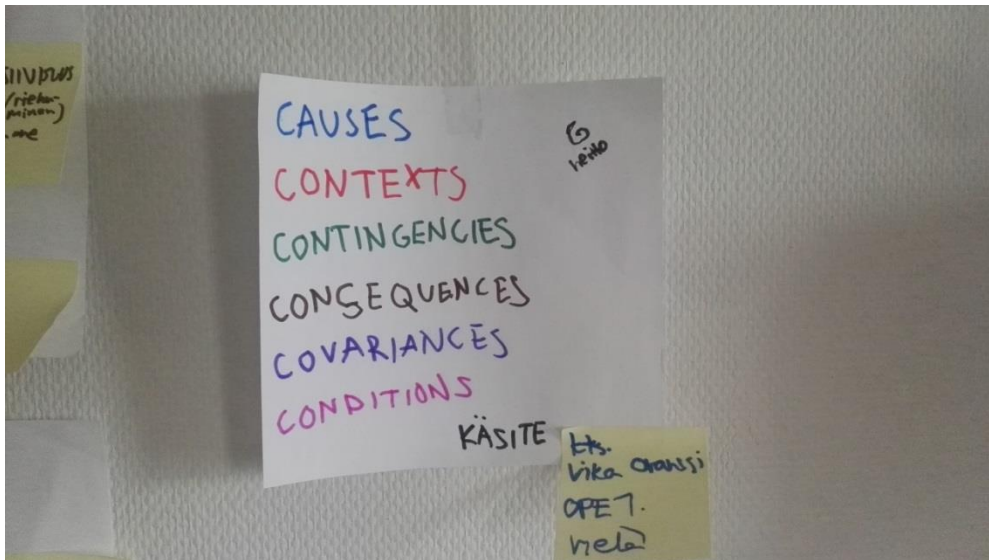 (rieku-
minen)
CAUSES
CONTEXTS
CONTINGENCIES
CONSEQUENCES
COVARIANCES
CONDITIONS
KÄSITE
kts.
vika oranssi
OPE 7.
vielä